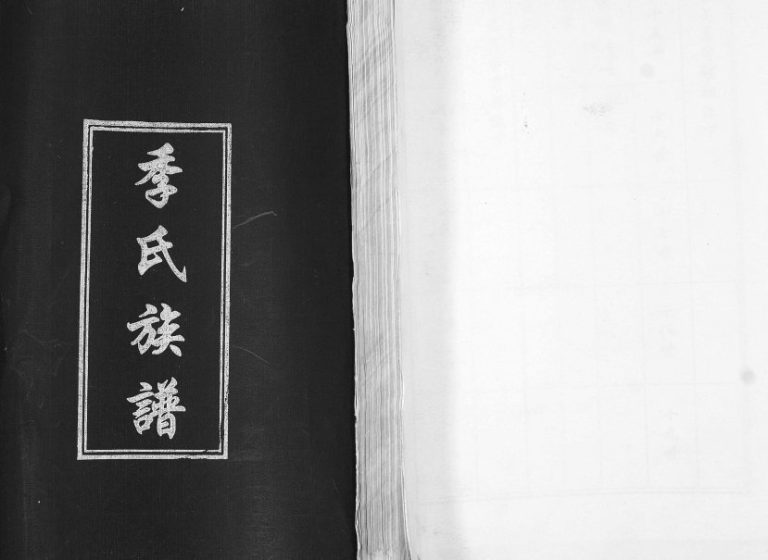 季氏族譜